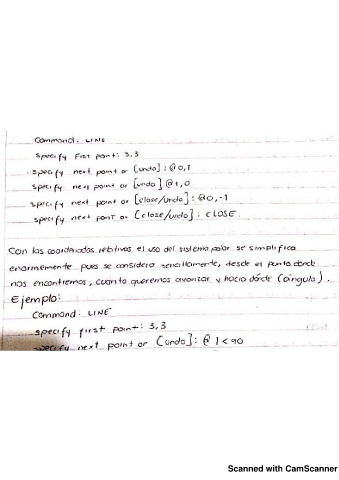 Command: LINE
specify First point: 3,3
specify next point or [undo]: @0,1
specify next point or [undo] @1,0
specify next point or [close/undo]: @0,-1
specify next point or (close/undo]: CLOSE
Con las coordenadas relativas el uso del sistema polar se simplifica
enormemente pues se considera sencillamente, desde el punto donde
nos encontremos, cuanto queremos avanzar y hacia dónde (ángulo).
Ejemplo:
Command: LINE
specify first point: 3,3
specify next point or [undo]: @ 1<90
Scanned with CamScanner